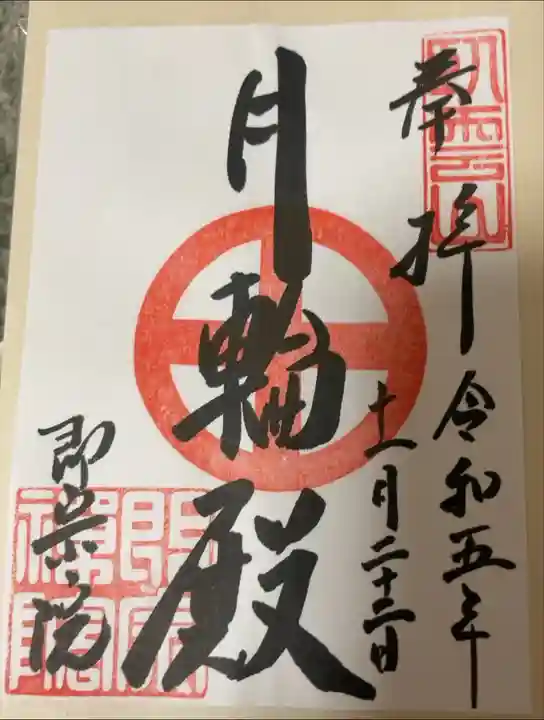 奉拝
令和五年
十一月二十三日
月輪殿
即宗院